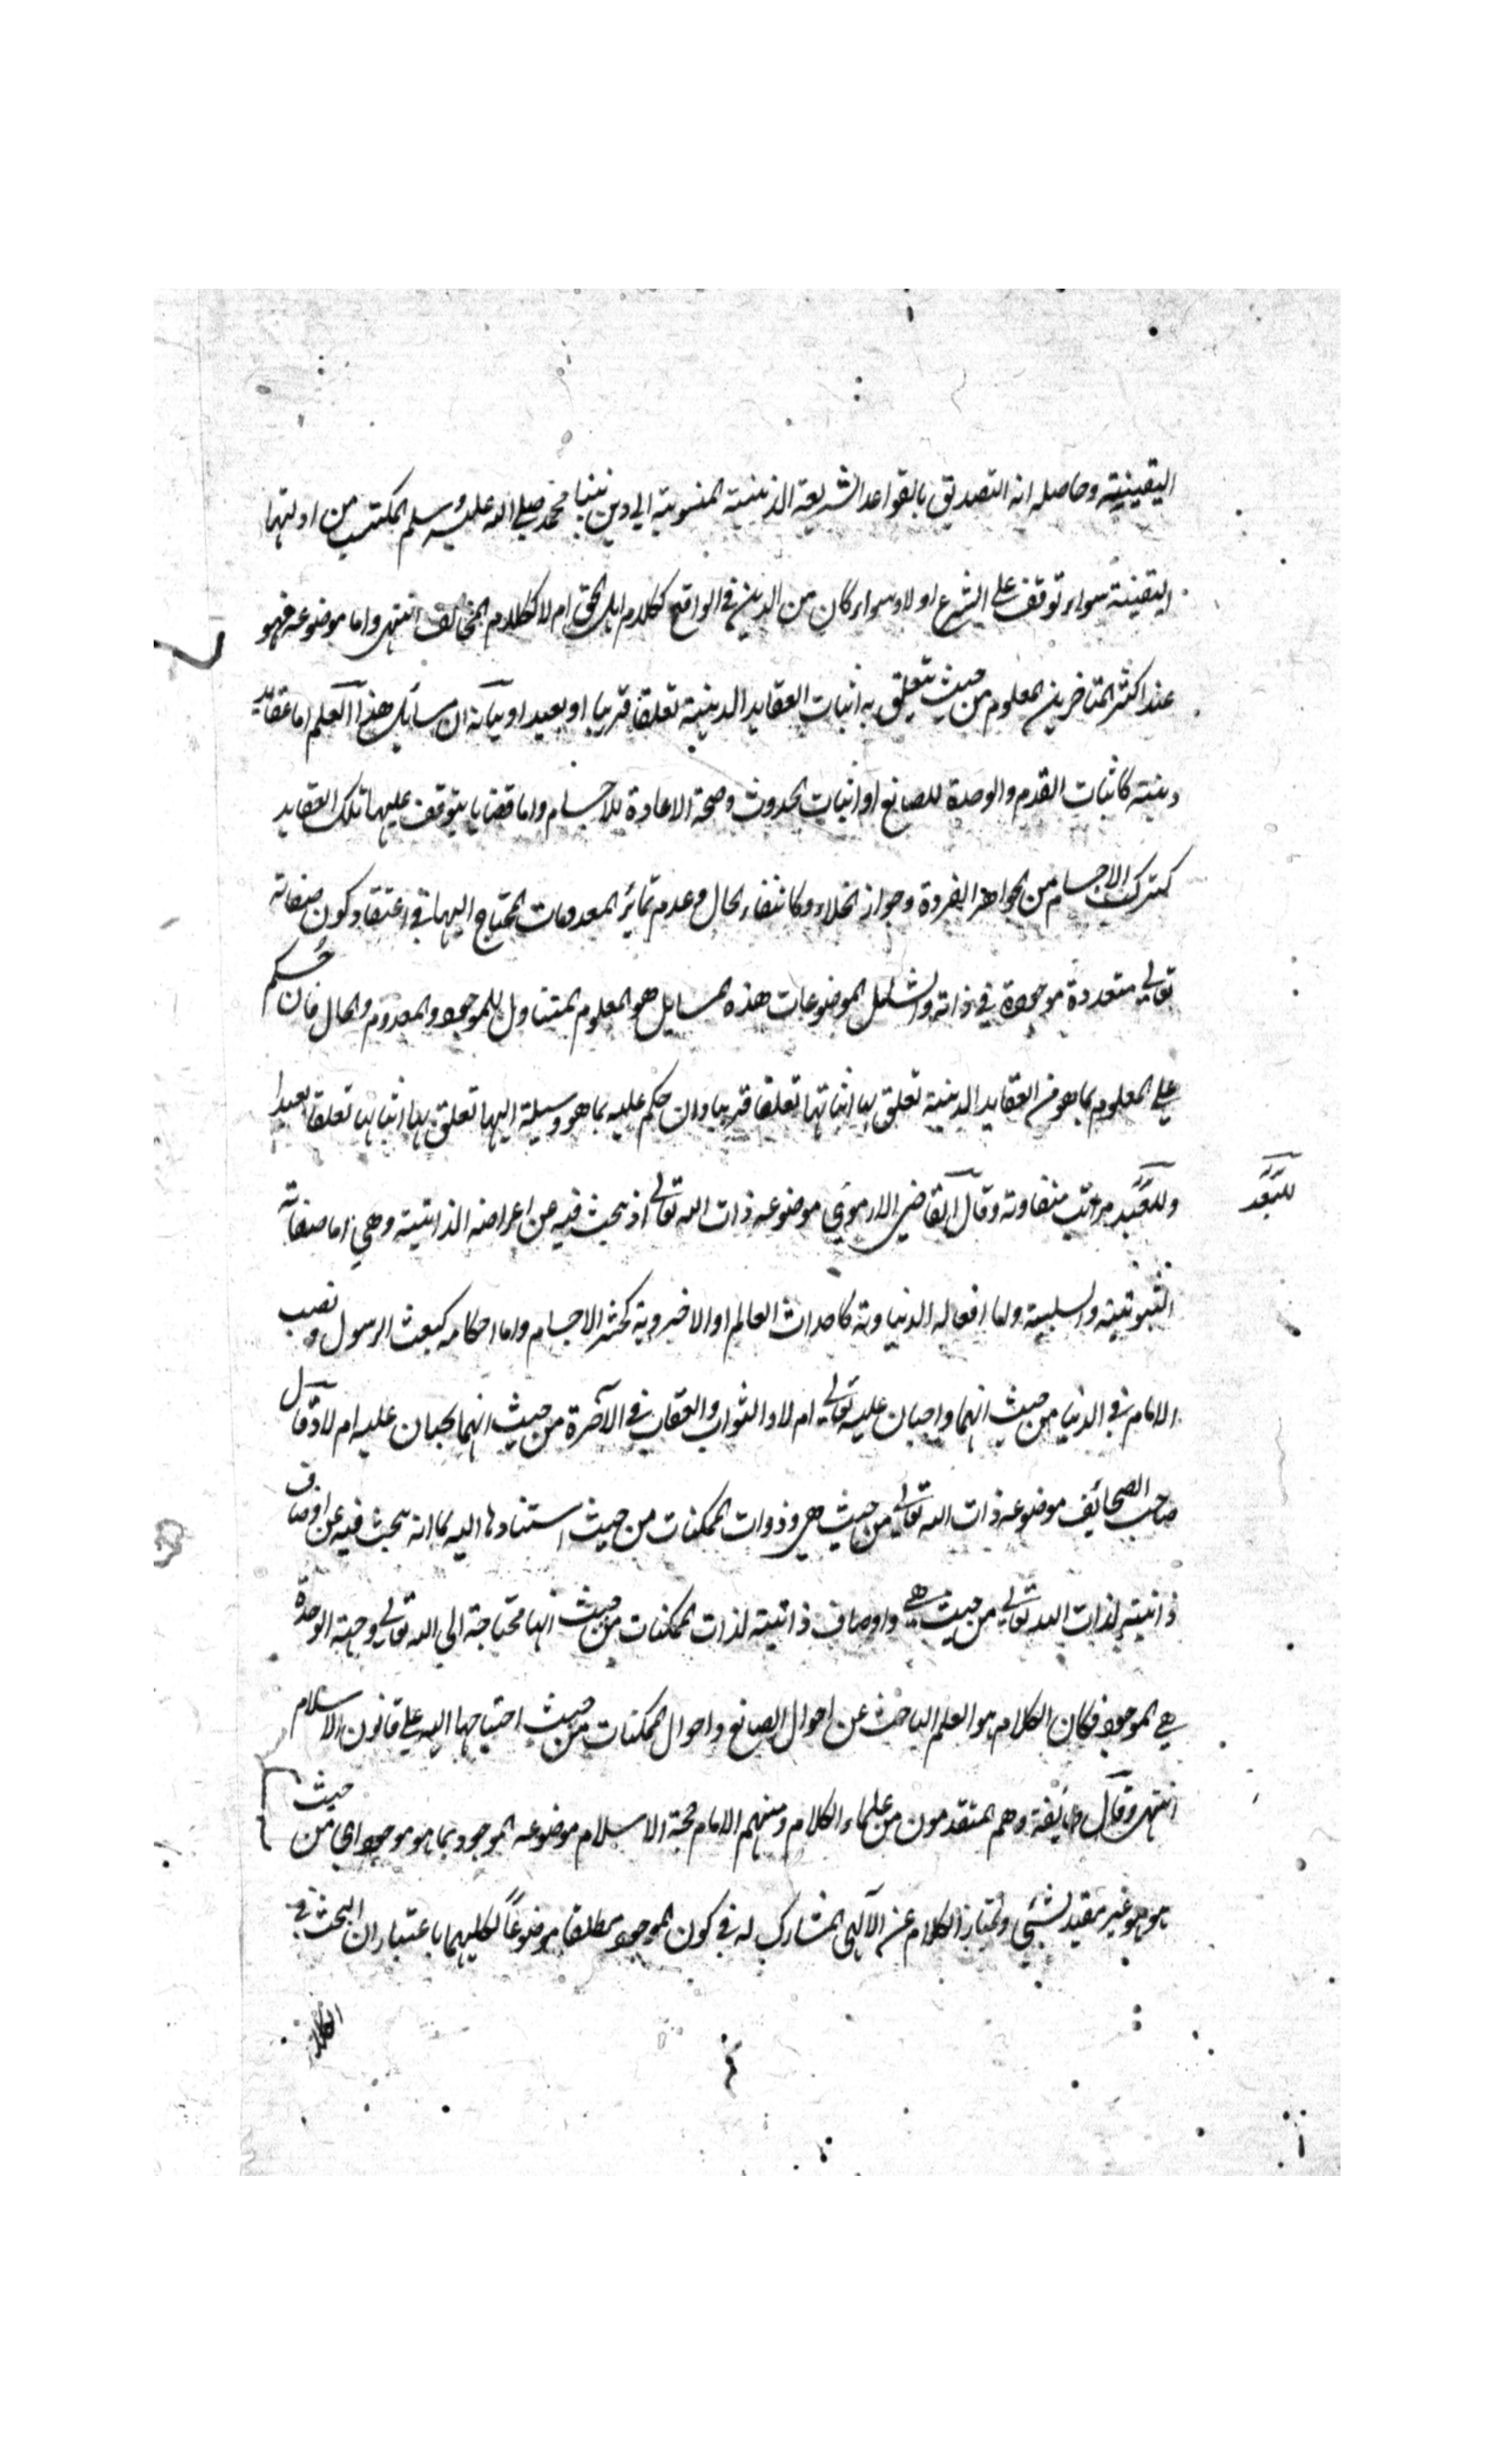 اليقينية وحاصله انه التصديق بالقواعد الشريعة الدينية المنسوبة الي دين نبينا محمد صلي الله عليه وسلم المكتسب من ادلتها
اليقينة سواء توقف علي الشرع او لا وسواء كان من الدين في الواقع ككلام اهل الحق ام لا ككلام المخالف انتهى واما موضوعه فهو
عند اكثر المتاخرين المعلوم من حيث يتعلق به اثبات العقايد الدينية تعلقا قريبا او بعيدا وبيانه ان مسايل هذا العلم اما عقايد
دينية كاثبات القدم والوحدة للصانع او اثبات الحدوث وصحة الاعادة للاجسام واما قضايا يتوقف عليها تلك العقايد
كتركب الاجسام من الجواهر الفردة وجواز الخلاء وكانتفاء الحال وعدم تمايز المعدومات المحتاج اليها في اعتقاد كون صفاته
تعالي متعددة موجودة في ذاته والشامل لموضوعات هذه المسايل هو المعلوم المتناول للموجود والمعدوم والحال فان حكم
علي المعلوم بما هو من العقايد الدينية تعلق بها اثباتها تعلقا قريبا وان حكم عليه بما هو وسيلة اليها تعلق بها اثباتها تعلقا بعيدا
وللبعد مراتب متفاوتة وقال القاضي الارموي موضوعه ذات الله تعالي اذ يبحث فيه عن اعراضه الذاتية وهي اما صفاته
للبعد
الثبوتية والسلبية واما افعاله الدنياوية كاحداث العالم او الاخروية كحشر الاجسام واما احكامه كبعث الرسول ونصب
الامام في الدنيا من حيث انهما واجبان عليه تعالي ام لا والثواب والعقاب في الآخرة من حيث انهما يجبان عليه ام لا وقال
صاحب الصحائف موضوعه ذات الله تعالي من حيث هي وذوات الممكنات من حيث استنادها اليه لما انه يبحث فيه عن اوصاف
ذاتية لذات الله تعالي من حيث هي واوصاف ذاتية لذات الممكنات من حيث انها محتاجة الي الله تعالي وجهة الوحدة
هي الموجود فكان الكلام هو العلم الباحث عن احوال الصانع واحوال الممكنات من حيث احتياجها اليه علي قانون الاسلام
انتهى وقال طايفة وهم المتقدمون من علماء الكلام ومنهم الامام حجة الاسلام موضوعه الموجود بما هو موجود اي من حيث
هو هو غير مقيد لشئ ويمتاز الكلام عن الآلهي المشارك له في كون الموجود مطلقا موضوعاً لكليهما باعتبار ان البحث في
الكلام